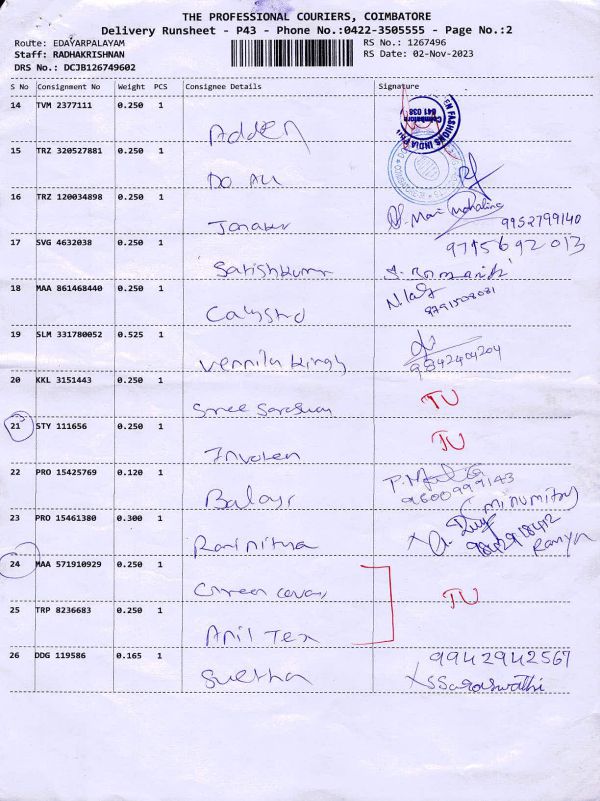 THE PROFESSIONAL COURIERS, COIMBATORE
Delivery Runsheet - P43 - Phone No.:0422-3505555 - Page No.:2
Route: EDAYARPALAYAM
RS No.: 1267496
Staff: RADHAKRISHNAN
RS Date: 02-Nov-2023
DRS No.: DCJB126749602
S No Consignment No Weight PCS Consignee Details Signature
14 TVM 2377111 0.250 1
FASHIONS INDIA
Coimbatore
641 038
Adden
15 TRZ 320527881 0.250 1
DO ALL
16 TRZ 120034898 0.250 1
9952799140
17 SVG 4632038 0.250 1 9715692013
Satishkumar
18 MAA 861468440 0.250 1
8791508081
19 SLM 331780052 0.525 1
Vennila Kingly
9842404204
20 KKL 3151443 0.250 1
TU
Sree
21 STY 111656 0.250 1
TU
22 PRO 15425769 0.120 1
9600999143
Balayr
23 PRO 15461380 0.300 1
Ranjya
24 MAA 571910929 0.250 1
Green
TU
25 TRP 8236683 0.250 1
Anil Tex
26 DDG 119586 0.165 1 9942942567
Suetha SSaraswathi